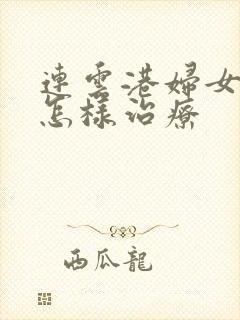 連雲港婦女
怎樣治療
西瓜龍